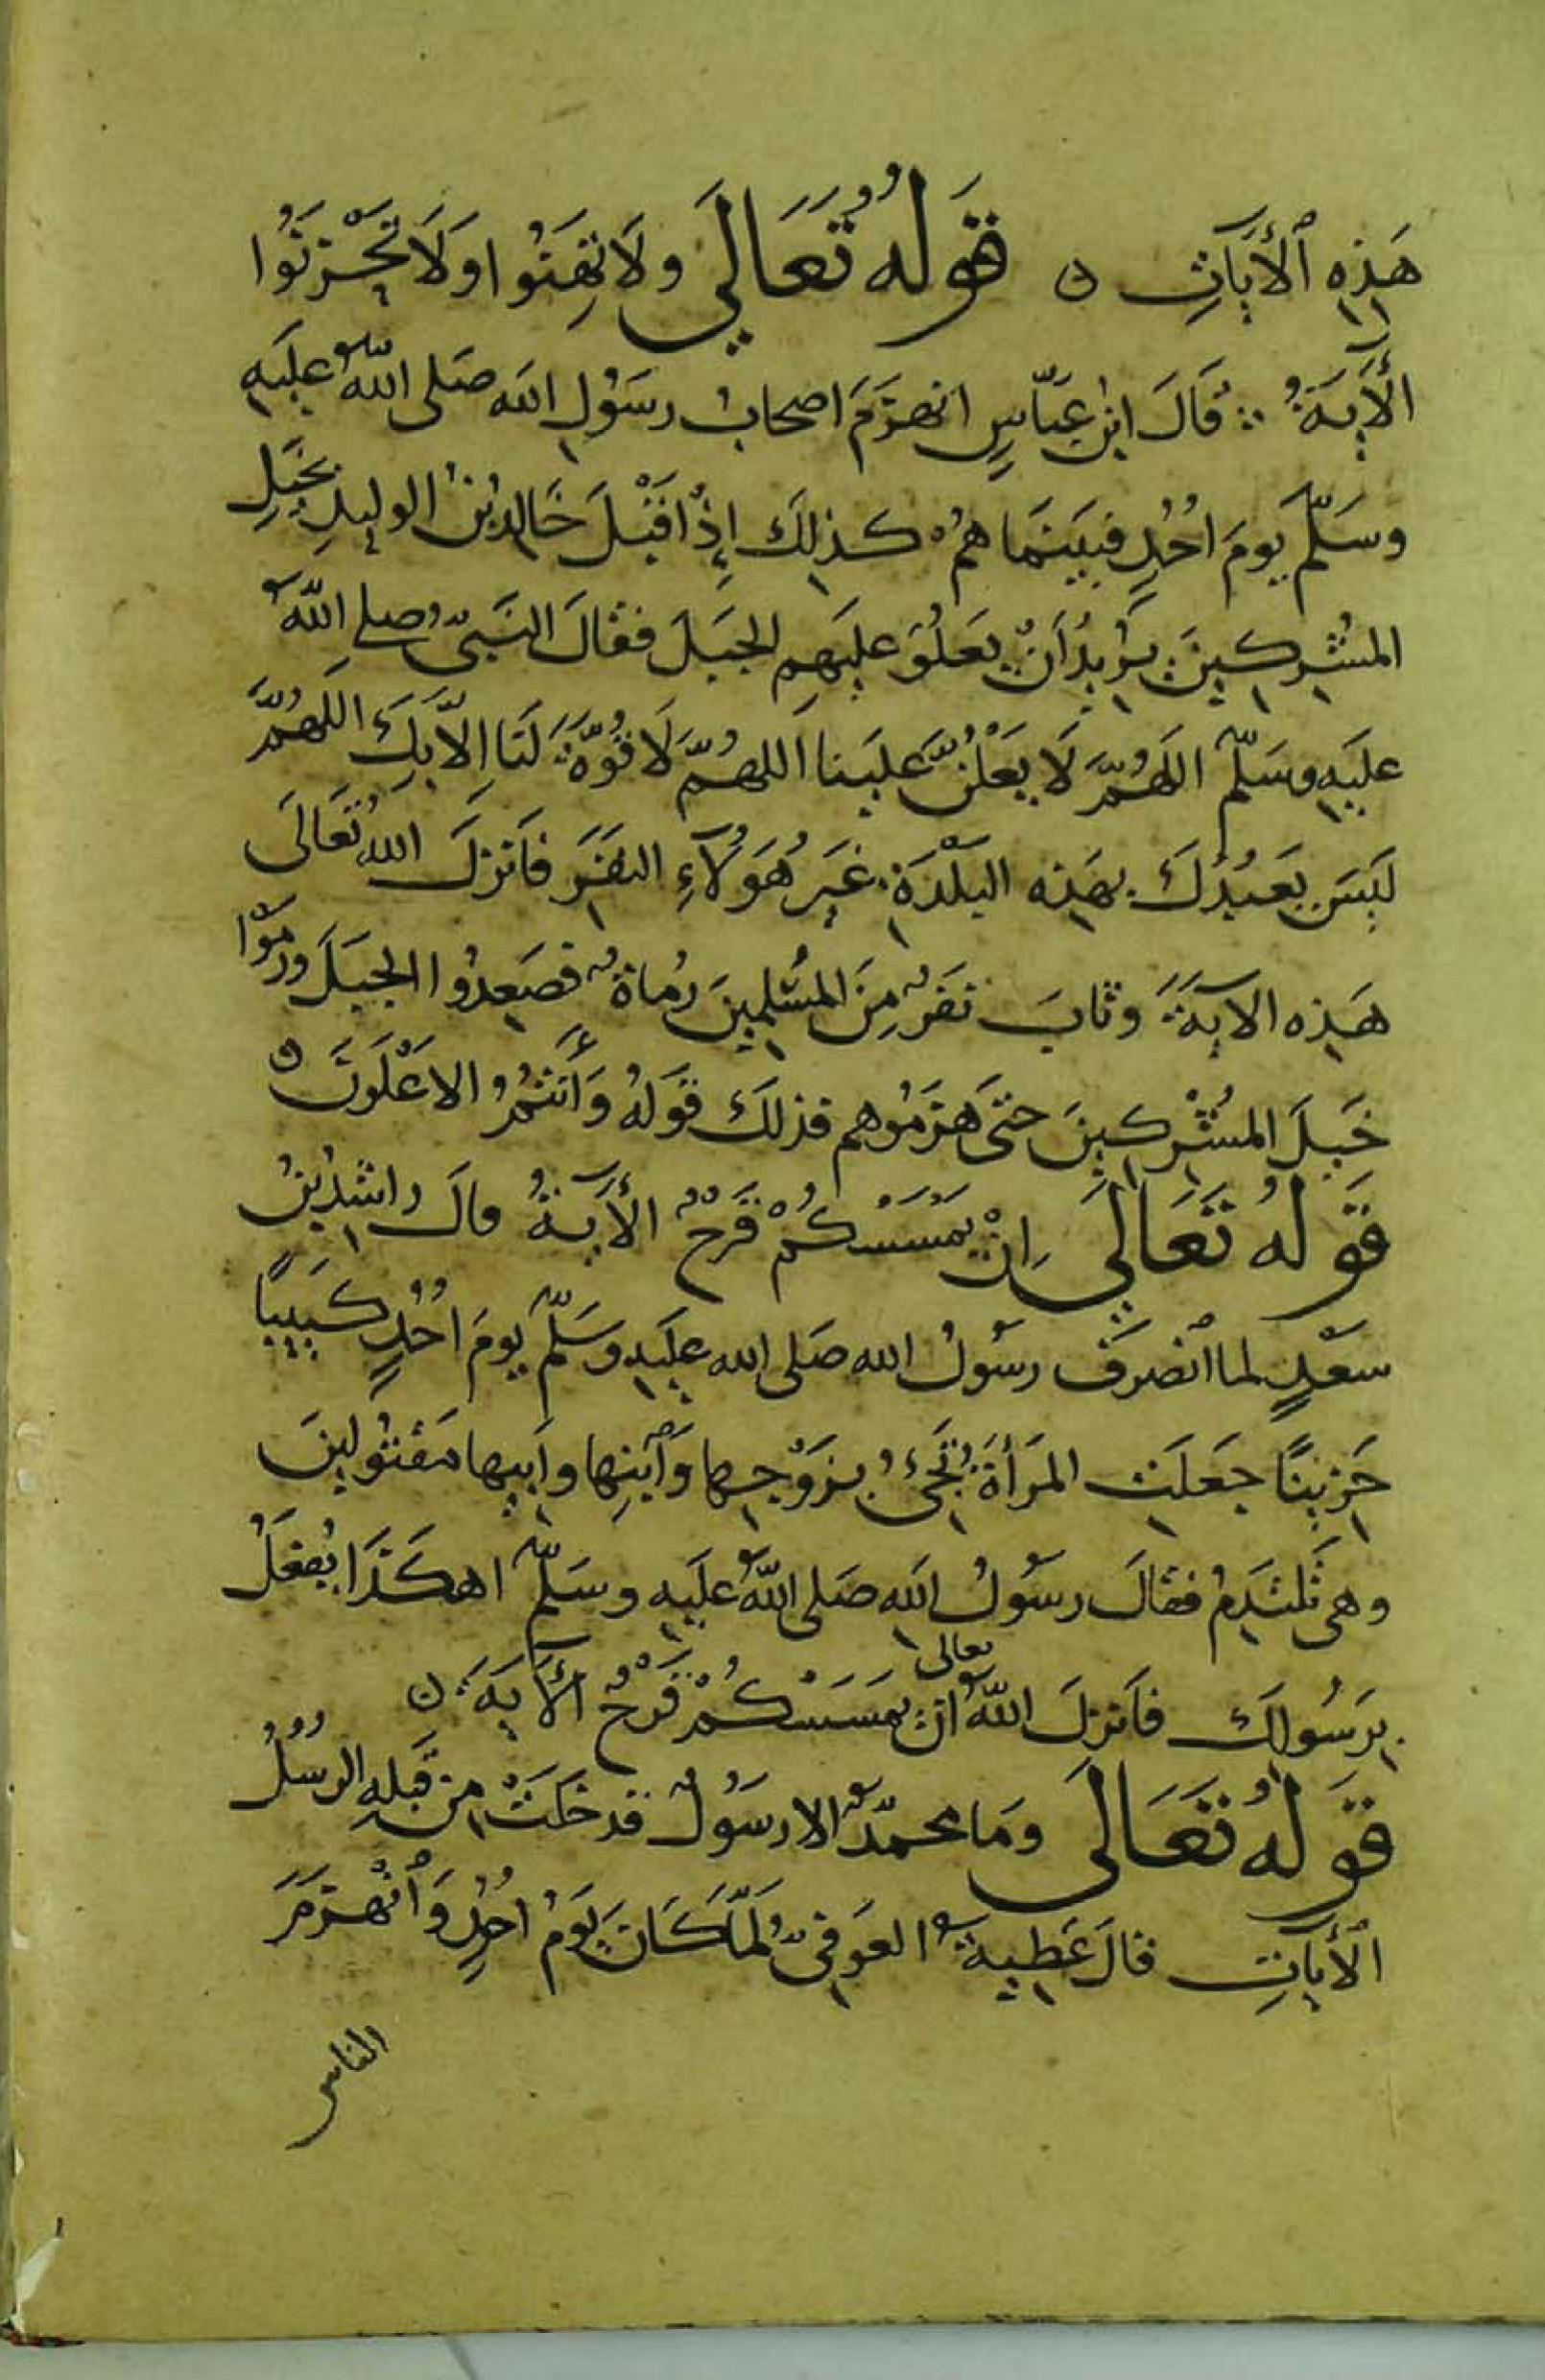 هَذِهِ ٱلْأَيَاتِ ۝ قَولُهُ تَعَالَي ولَا تَهِنُوا وَلَا تَحْزَنُوا
الأَيَةُ ۞ قَالَ ابْن عَبّاسٍ انهزَمَ اصحابُ رسَوُلِ الله صَلى اللهُ عليَهِ
وسَلّم يومَ احُدٍ فبيَنَما همُ كذلِكَ إذْ اقْبَلَ خَالدبْنُ الوليدِ بخَيلِ
المشُركينَ يُريدُ أَنْ يَعلُوَ عليَهِم الجبَلَ فقالَ النَبىُّ صلى اللهُ
عليَهِ وسَلّم اللهُمَّ لَا يَعْلُنَّ عَليَنا اَللهُمَّ لَا قُوّةَ لَنَا إلاّ بِكَ اللهُمَّ
ليَسَ يَعبُدُكَ بهَذِه البَلْدَةِ غيَرُ هَوُلَآءِ النفَرِ فاَنزلَ اللهُ تعَالَى
هَذِه الآيةَ وثابَ نفَرٌ مِنَ المسُلمِينَ رُماةٌ فصَعِدُوا الجبَلَ ورمَوْا
خَيلَ المشُركِينَ حتىَ هَزمُوهم فذلكَ قَولُهُ وَأَنتُمُ الاعْلَونَ ۝
قَولُهُ تَعَالَي إنْ يَمْسَسْكُمْ قَرْحٌ الأَيَةُ قالَ راشدُ بْنُ
سعْدٍ لما ٱنصَرَفَ رسوُلُ الله صَلى الله عليَهِ وسَلّم يومَ احُدٍ كَئيبًا
حَزينًا جعَلَتِ المرَأةُ تَجىُٔ بزَوْجِها وَٱبْنِها وأبيها مَقتُولينَ
وهى تَلْتدِمُ فقالَ رسوُلُ الله صَلى اللهُ عليَهِ وسَلّم اهكَذَا يُفعَلُ
برَسُولكَ فاَنزلَ اللهُ تعالى ان يَمسَسْكُمْ قَرْحٌ ٱلأَيَةَ ۝
قَولُهُ تَعَالَى ومَا محمدٌ الا رسَوُلٌ قد خلَتْ من قَبلِهِ الرسُلُ
ٱلأَياَتِ قالَ عَطيةُ العَوفىُّ لَمّا كَانَ يَومُ احُدٍ وَٱنْهزَمَ
الناس